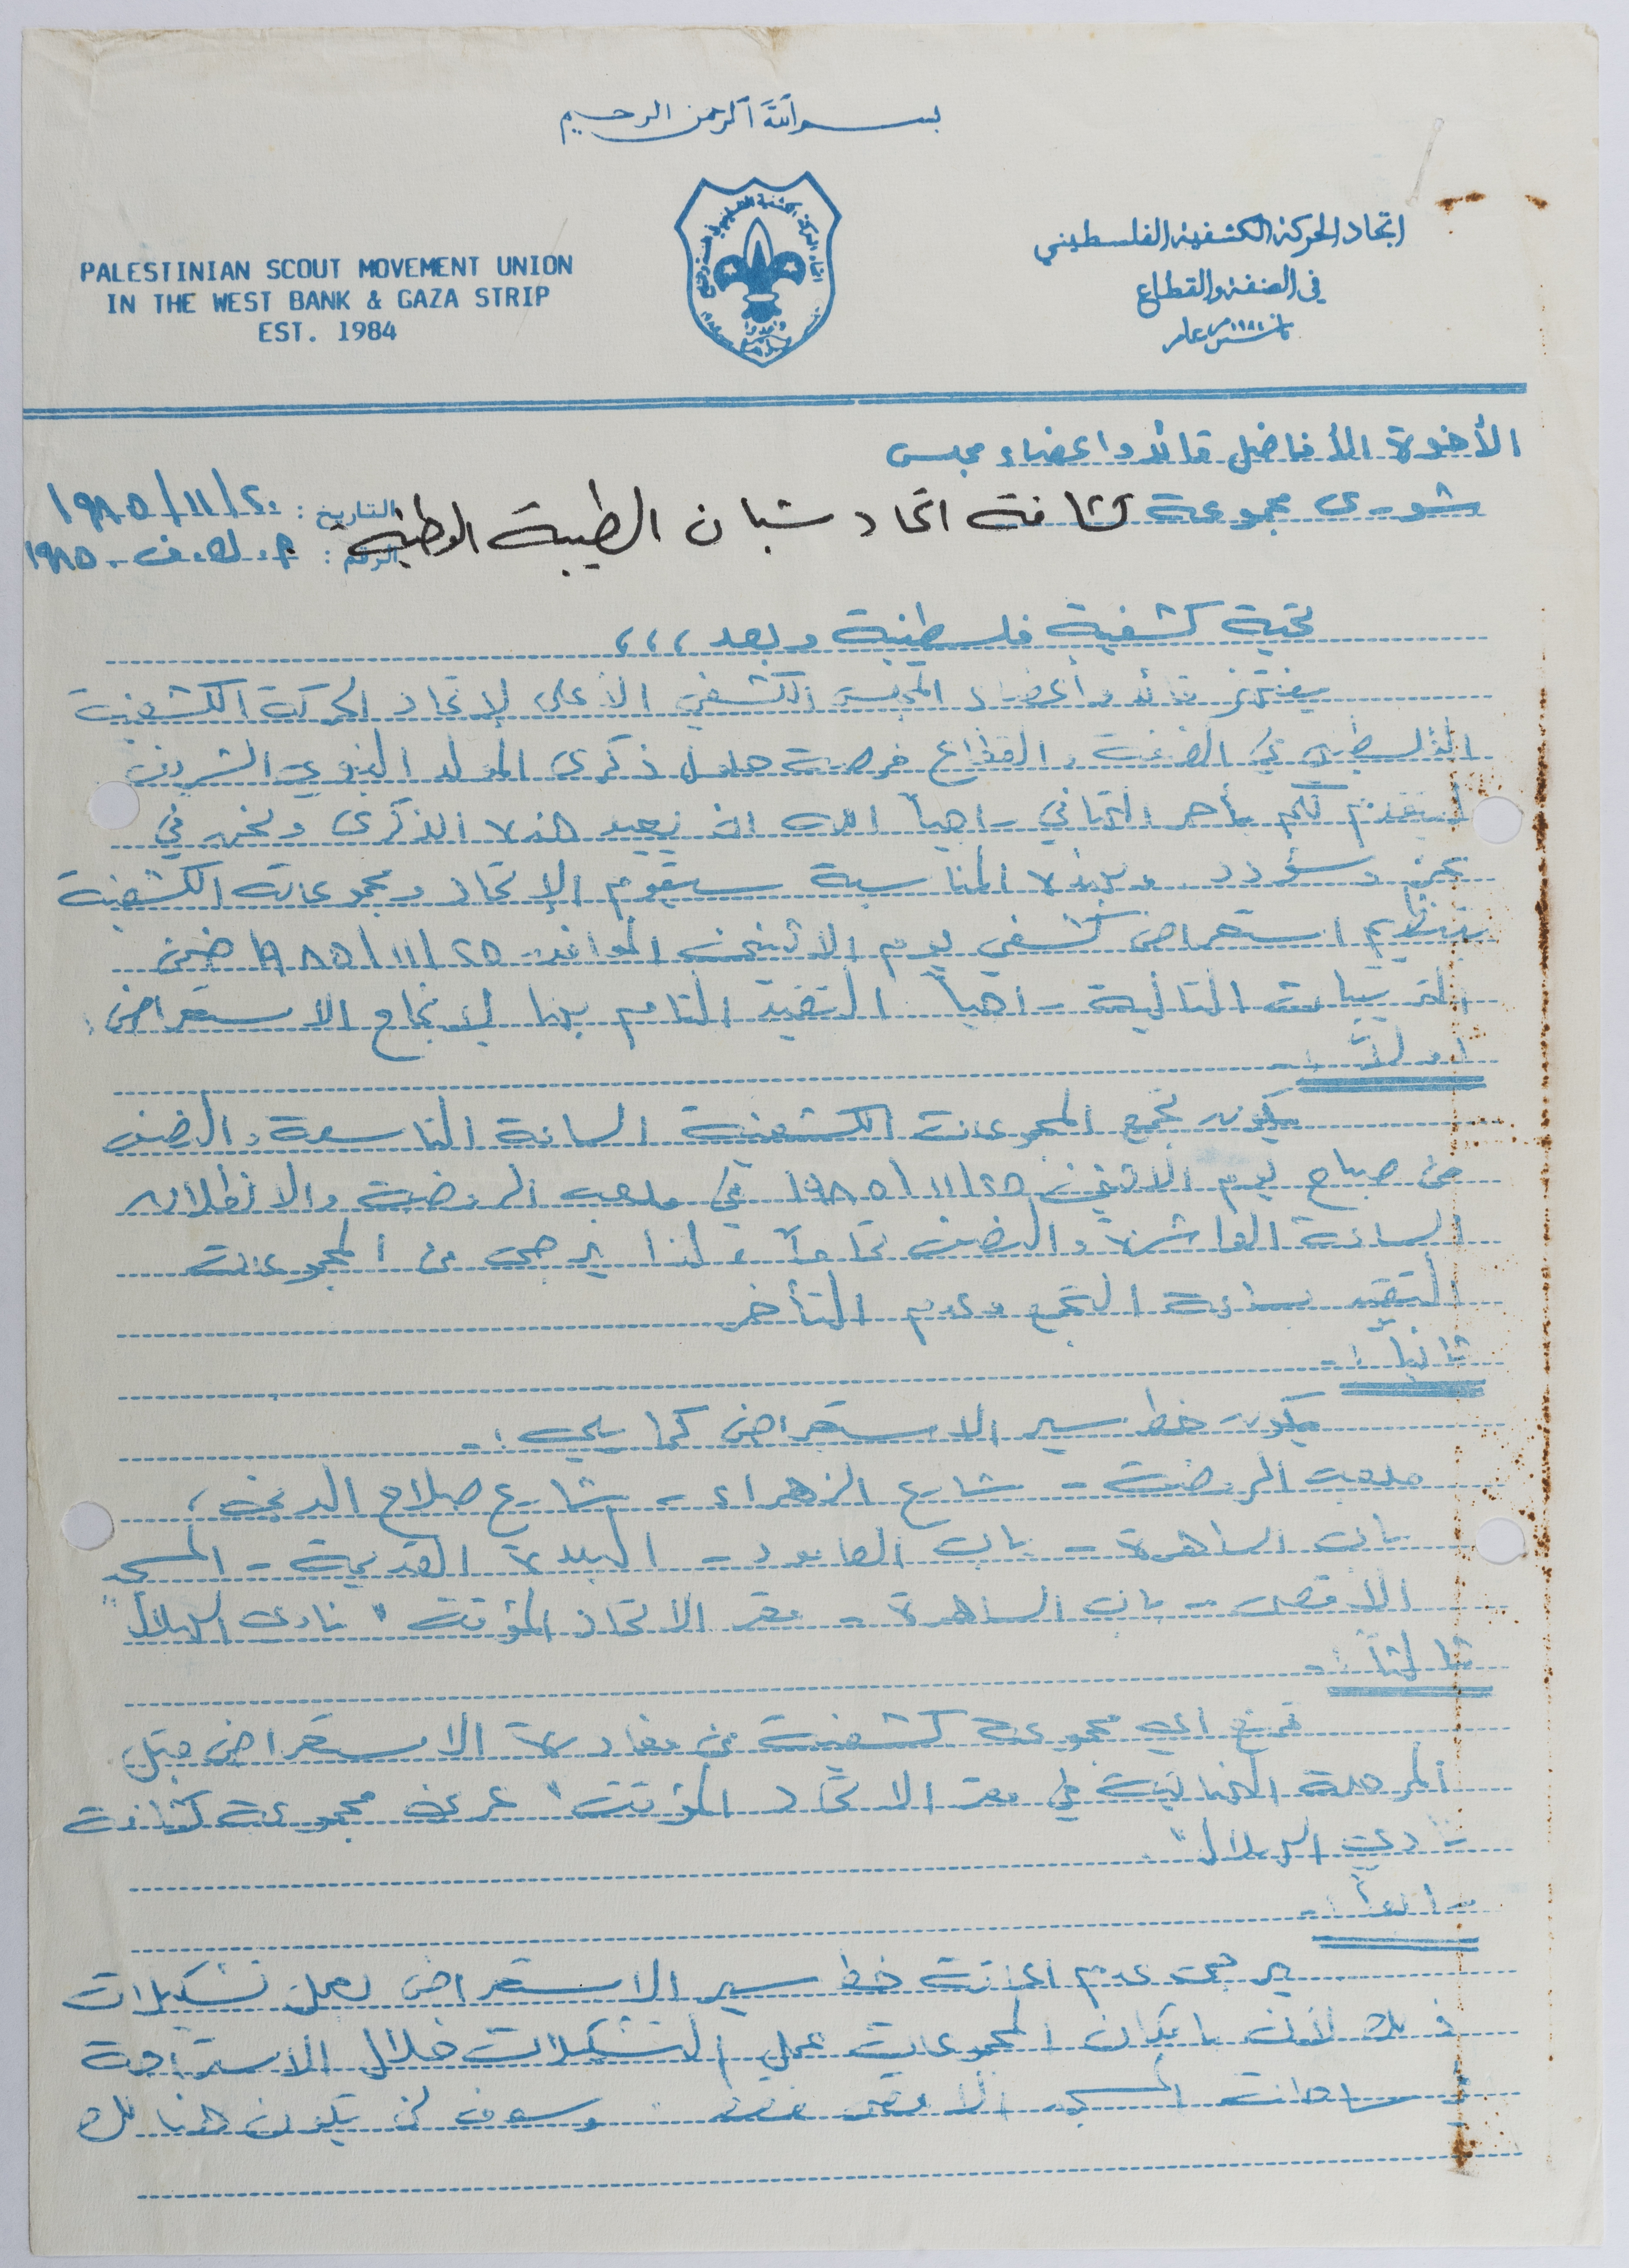 بسم الله الرحمن الرحيم
اتحاد الحركة الكشفية الفلسطيني
في الضفة والقطاع
تأسس عام ١٩٨٤م
PALESTINIAN SCOUT MOVEMENT UNION
IN THE WEST BANK & GAZA STRIP
EST. 1984
الأخوة الأفاضل قائد واعضاء مجلس
شورى مجموعة كشافة اتحاد شبان الطيبة الوطنية
التاريخ : ٢٠/١١/١٩٨٥
الرقم : م. ك. ف - ١٩٨٥
تحية كشفية فلسطينية وبعد ،،،
يغتنم قائد وأعضاء المجلس الكشفي الأعلى لإتحاد الحركة الكشفية
الفلسطيني في الضفة والقطاع فرصة حلول ذكرى المولد النبوي الشريف
ليتقدم لكم بأحر التهاني راجياً الله ان يعيد هذه الذكرى ونحن في
عز وسؤدد وبهذه المناسبة سيقوم الإتحاد ومجموعاته الكشفية
بتنظيم استعراض كشفي يوم الاثنين الموافق ٢٥/١١/١٩٨٥ ضمن
الترتيبات التالية راجياً التقيد التام بها لإنجاح الاستعراض :
أولاً :-
يكون تجمع المجموعات الكشفية الساعة التاسعة والنصف
من صباح يوم الاثنين ٢٥/١١/١٩٨٥ في ملعب الروضة والانطلاق
الساعة العاشرة والنصف تماماً ، لذا يرجى من المجموعات
التقيد بساعة التجمع وعدم التأخر
ثانياً :-
يكون خط سير الاستعراض كما يلي :-
ملعب الروضة - شارع الزهراء - شارع صلاح الدين ،
باب الساهرة - باب العامود - البلدة القديمة - المسجد
الاقصى - باب الساهرة - مقر الاتحاد المؤقت " نادي الهلال "
ثالثاً :-
تمنع اي مجموعة كشفية من مغادرة الاستعراض قبل
المرحلة النهائية في مقر الاتحاد المؤقت " عرين مجموعة كشافة
نادي الهلال "
رابعاً :-
يرجى عدم اعاقة خط سير الاستعراض بعمل تشكيلات
ذلك لأن بامكان المجموعات عمل التشكيلات خلال الاستراحة
في ساحات المسجد الأقصى فقط وسوف لن يكون هنالك